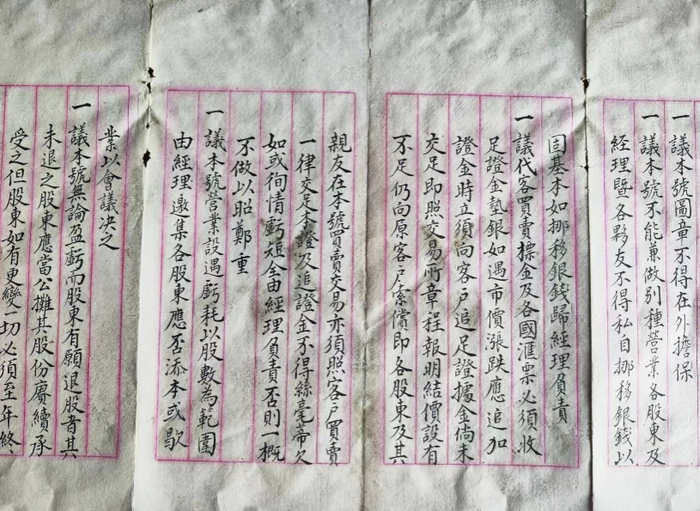 一議本號圖章不得在外擔保
一議本號不能兼做別種營業各股東及
經理暨各夥友不得私自挪移銀錢以
固基本如挪移銀錢歸經理負責
一議代客買賣標金及各國滙票必須收
足證金墊銀如遇市價漲跌應追加
證金時立須向客戶追足證據金倘未
交足即照交易所章程報明結價設有
不足仍向原客戶索償即各股東及其
親友在本號買賣交易亦須照客戶買賣
一律交足本證及追證金不得絲毫蒂欠
如或徇情虧短全由經理負責否則一概
不做以昭鄭重
一議本號營業設遇虧耗以股數為範圍
由經理邀集各股東應否添本或歇
業以會議決之
一議本號無論盈虧而股東有願退股者其
未退之股東應當公攤其股份賡續承
受之但股東如有更變一切必須至年終